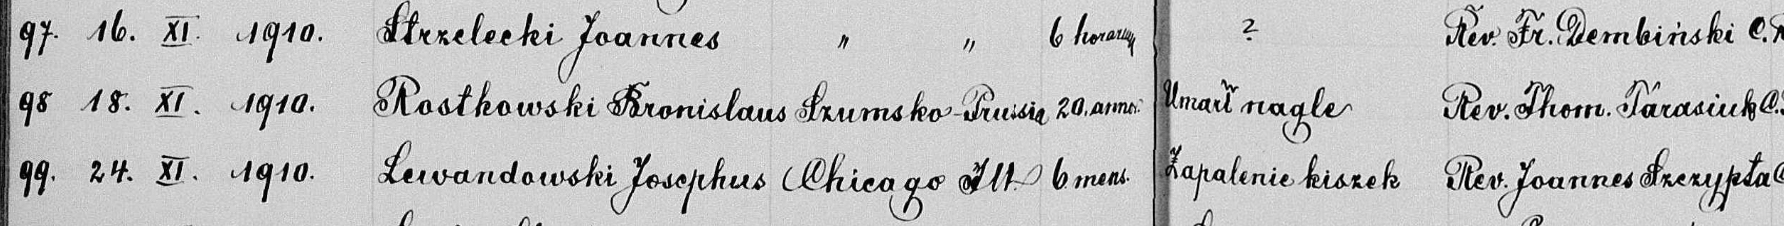 97. 16. XI. 1910. Strzelecki Joannes " " 6 horarum ? Rev. Fr. Dembiński C.R
98 18. XI. 1910. Rostkowski Bronislaus Szumsko-Prussia 20. annor. Umarł nagle Rev. Thom. Tarasiuk C.
99. 24. XI. 1910. Lewandowski Josephus Chicago Ill. 6 mens. Zapalenie kiszek Rev. Joannes Szczypta C